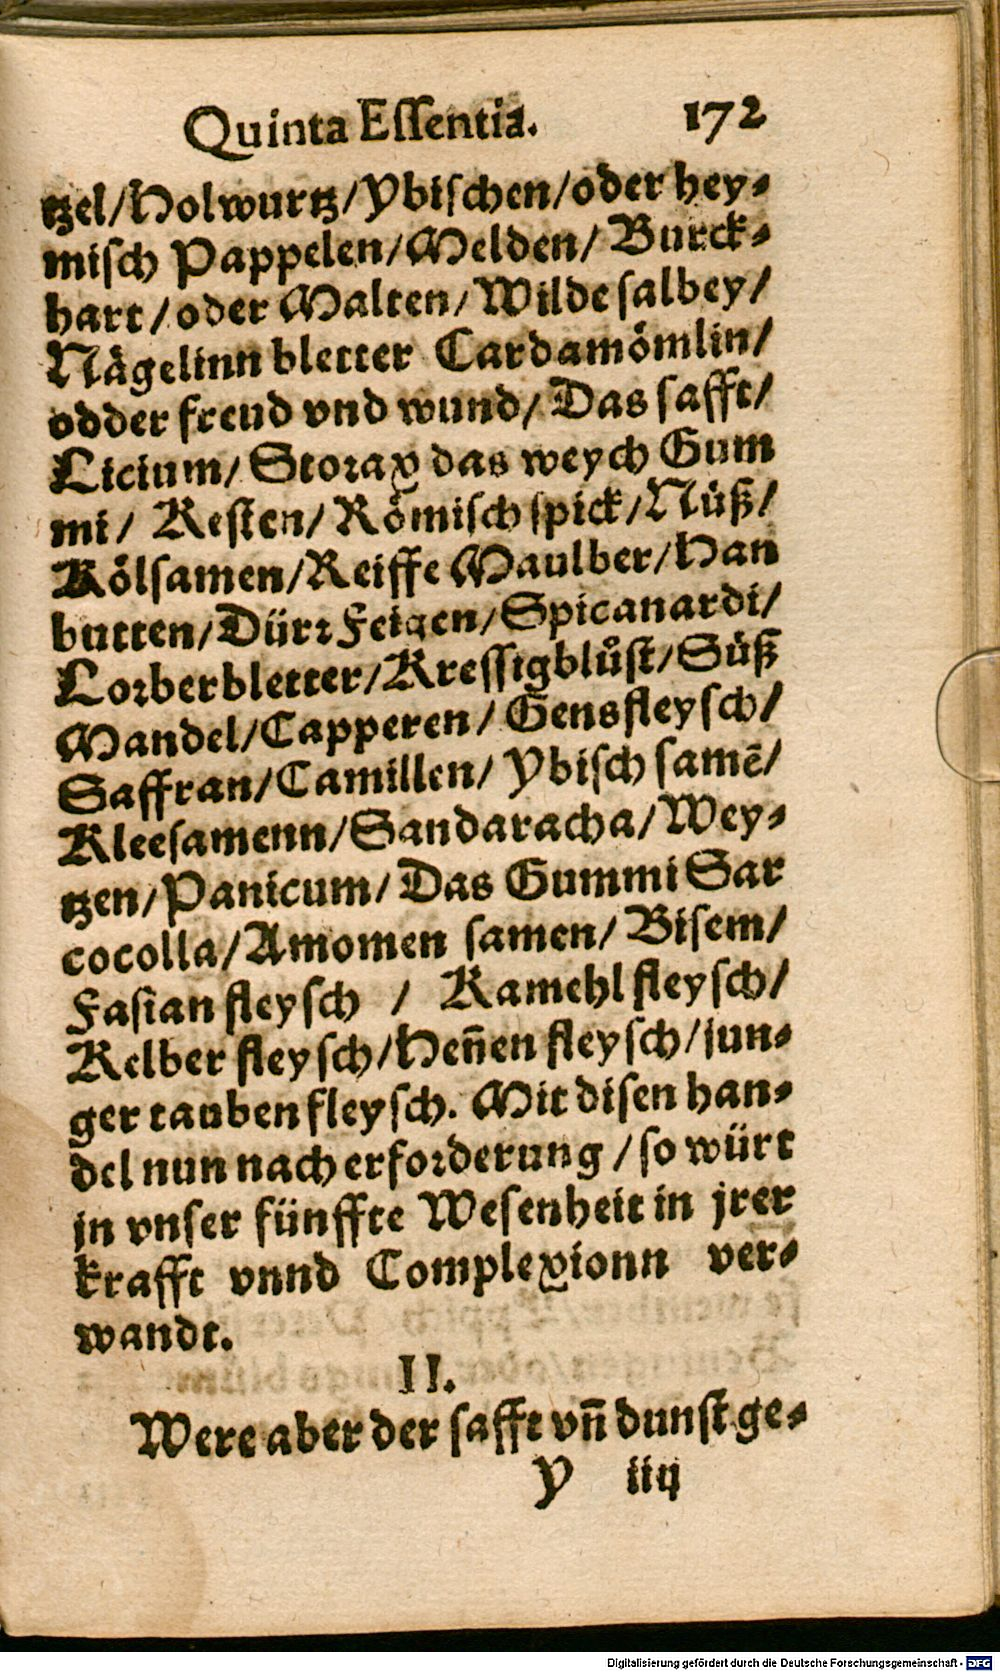 Quinta Eſſentia. 172
tzel/Holwurtz/Ybiſchen/oder hey⸗
miſch Pappelen/Melden/ Burck⸗
hart/oder Malten/Wilde ſalbey/
Nägelinn bletter Cardamömlin/
odder freud vnd wund/ Das ſafft/
Licium/ Storax das weych Gum
mi/ Keſten/ Römiſch ſpick/Nüß/
Kölſamen/Reiffe Maulber/Han
butten/Dürꝛ Feigen/Spicanardi/
Loꝛberbletter/Kreſſigblůſt/Süß
Mandel/Capperen/ Gensfleyſch/
Saffran/Camillen/ Ybiſch ſamē/
Kleeſamenn/Sandaracha/Wey⸗
tzen/Panicum/ Das Gummi Sar
cocolla/Amomen ſamen/ Biſem/
Faſian fleyſch / Kamehl fleyſch/
Kelber fleyſch/Heñen fleyſch/jun⸗
ger tauben fleyſch. Mit diſen han⸗
del nun nach erfoꝛderung /ſo würt
jn vnſer fünffte Weſenheit in jrer
krafft vnnd Complexionn ver⸗
wandt.
II.
Were aber der ſafft vñ dunſt ge⸗
Y iiij
Digitalisierung gefördert durch die Deutsche Forschungsgemeinschaft - DFG